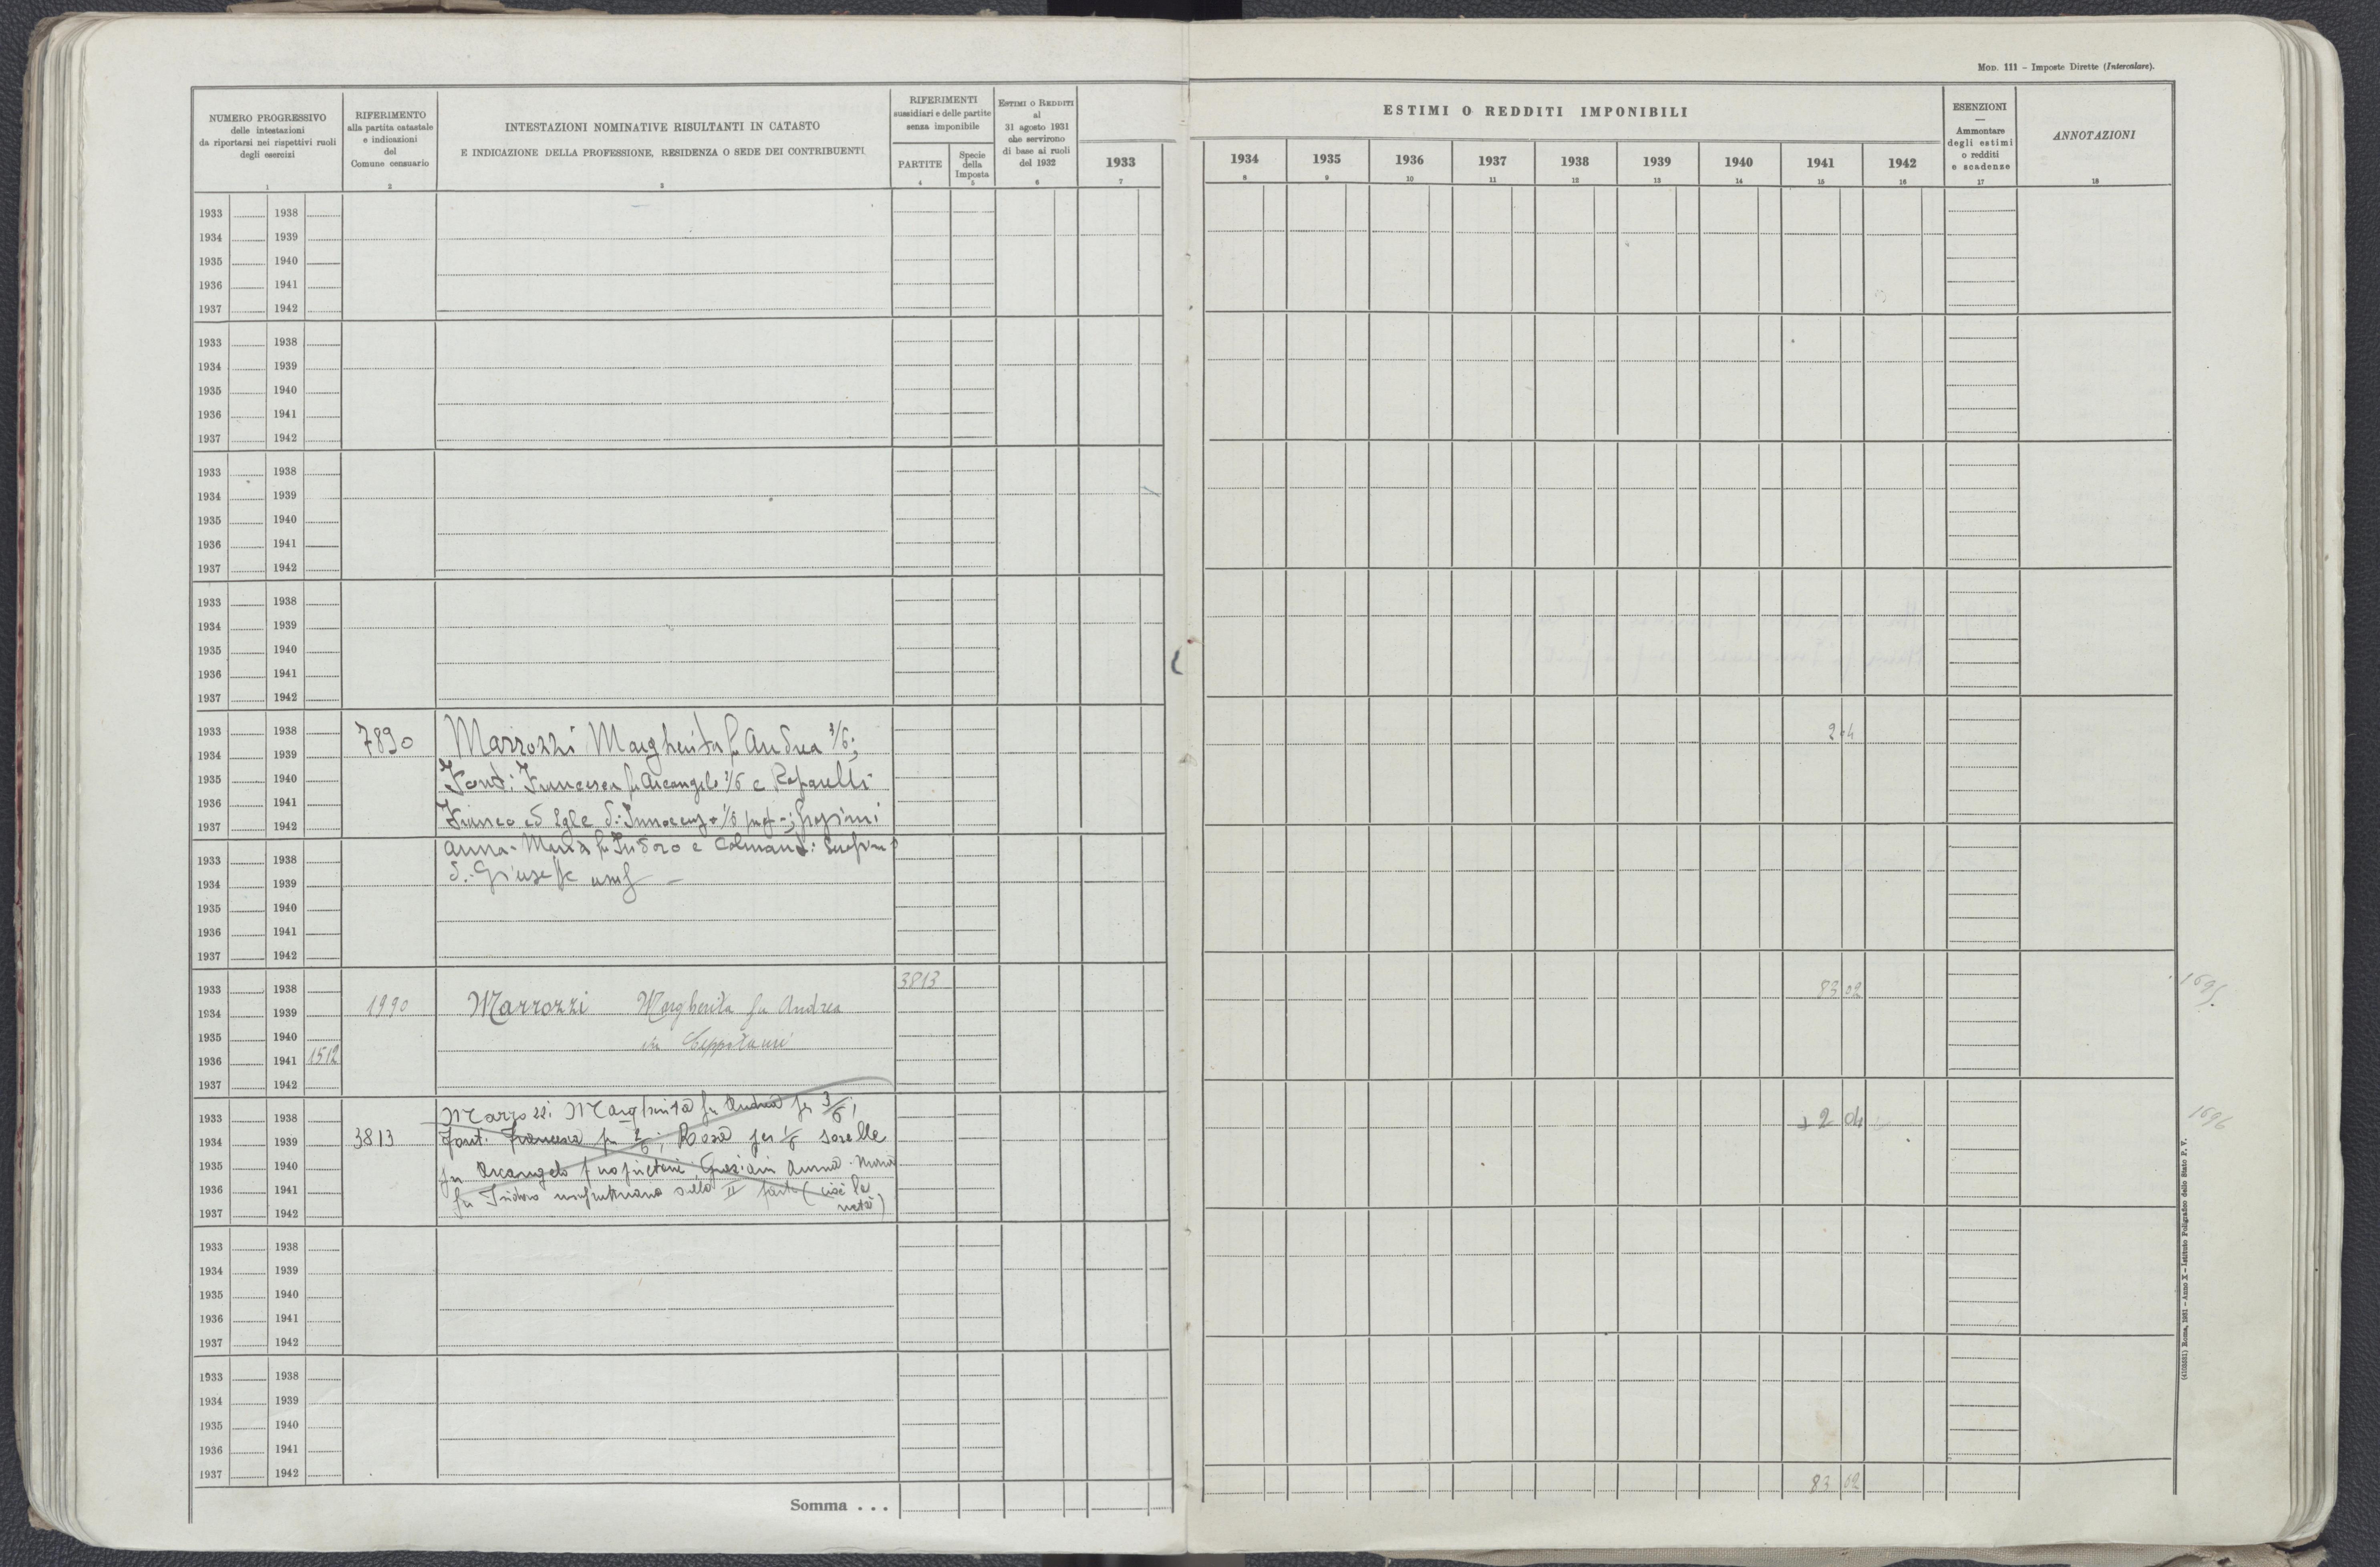 Mod. 111 – Imposte Dirette (Intercalare).
NUMERO PROGRESSIVO
delle intestazioni
da riportarsi nei rispettivi ruoli
degli esercizi
1
RIFERIMENTO
alla partita catastale
e indicazioni
del
Comune censuario
2
INTESTAZIONI NOMINATIVE RISULTANTI IN CATASTO
E INDICAZIONE DELLA PROFESSIONE, RESIDENZA O SEDE DEI CONTRIBUENTI
3
RIFERIMENTI
sussidiari e delle partite
senza imponibile
PARTITE
4
Specie
della
Imposta
5
Estimi o Redditi
al
31 agosto 1931
che servirono
di base ai ruoli
del 1932
6
ESTIMI O REDDITI IMPONIBILI
1933 1934 1935 1936 1937 1938 1939 1940 1941 1942
7 8 9 10 11 12 13 14 15 16
ESENZIONI
—
Ammontare
degli estimi
o redditi
e scadenze
17
ANNOTAZIONI
18
1933 1938
1934 1939
1935 1940
1936 1941
1937 1942
1933 1938
1934 1939
1935 1940
1936 1941
1937 1942
1933 1938
1934 1939
1935 1940
1936 1941
1937 1942
1933 1938
1934 1939
1935 1940
1936 1941
1937 1942
1933 1938
1934 1939
1935 1940
1936 1941
1937 1942
7890 Marrozzi Margherita fu Andrea 3/6; 2 04
Francesca fu Arcangelo 2/6 e
Franco ed Egle di Innocenzo 1/6
Anna-Maria fu Isidoro e
di Giuseppe usuf –
1933 1938
1934 1939
1935 1940
1936 1941
1937 1942
1933 1938
1934 1939
1935 1940
1936 1941 1512
1937 1942
3813
1990 Marrozzi Margherita fu Andrea 83 02 1695
in Ceppotauri
1933 1938
1934 1939
1935 1940
1936 1941
1937 1942
Marrozzi Margherita fu Andrea per 3/6; + 2 04 1696
3813 Francesca per 2/6; Rosa per 1/6 sorelle
fu Arcangelo proprietarie; Graziani Anna-Maria
fu Isidoro usufruttuaria della II parte (cioè la
metà)
1933 1938
1934 1939
1935 1940
1936 1941
1937 1942
1933 1938
1934 1939
1935 1940
1936 1941
1937 1942
Somma . . . 83 02
(4103581) Roma, 1931 – Anno X – Istituto Poligrafico dello Stato P. V.